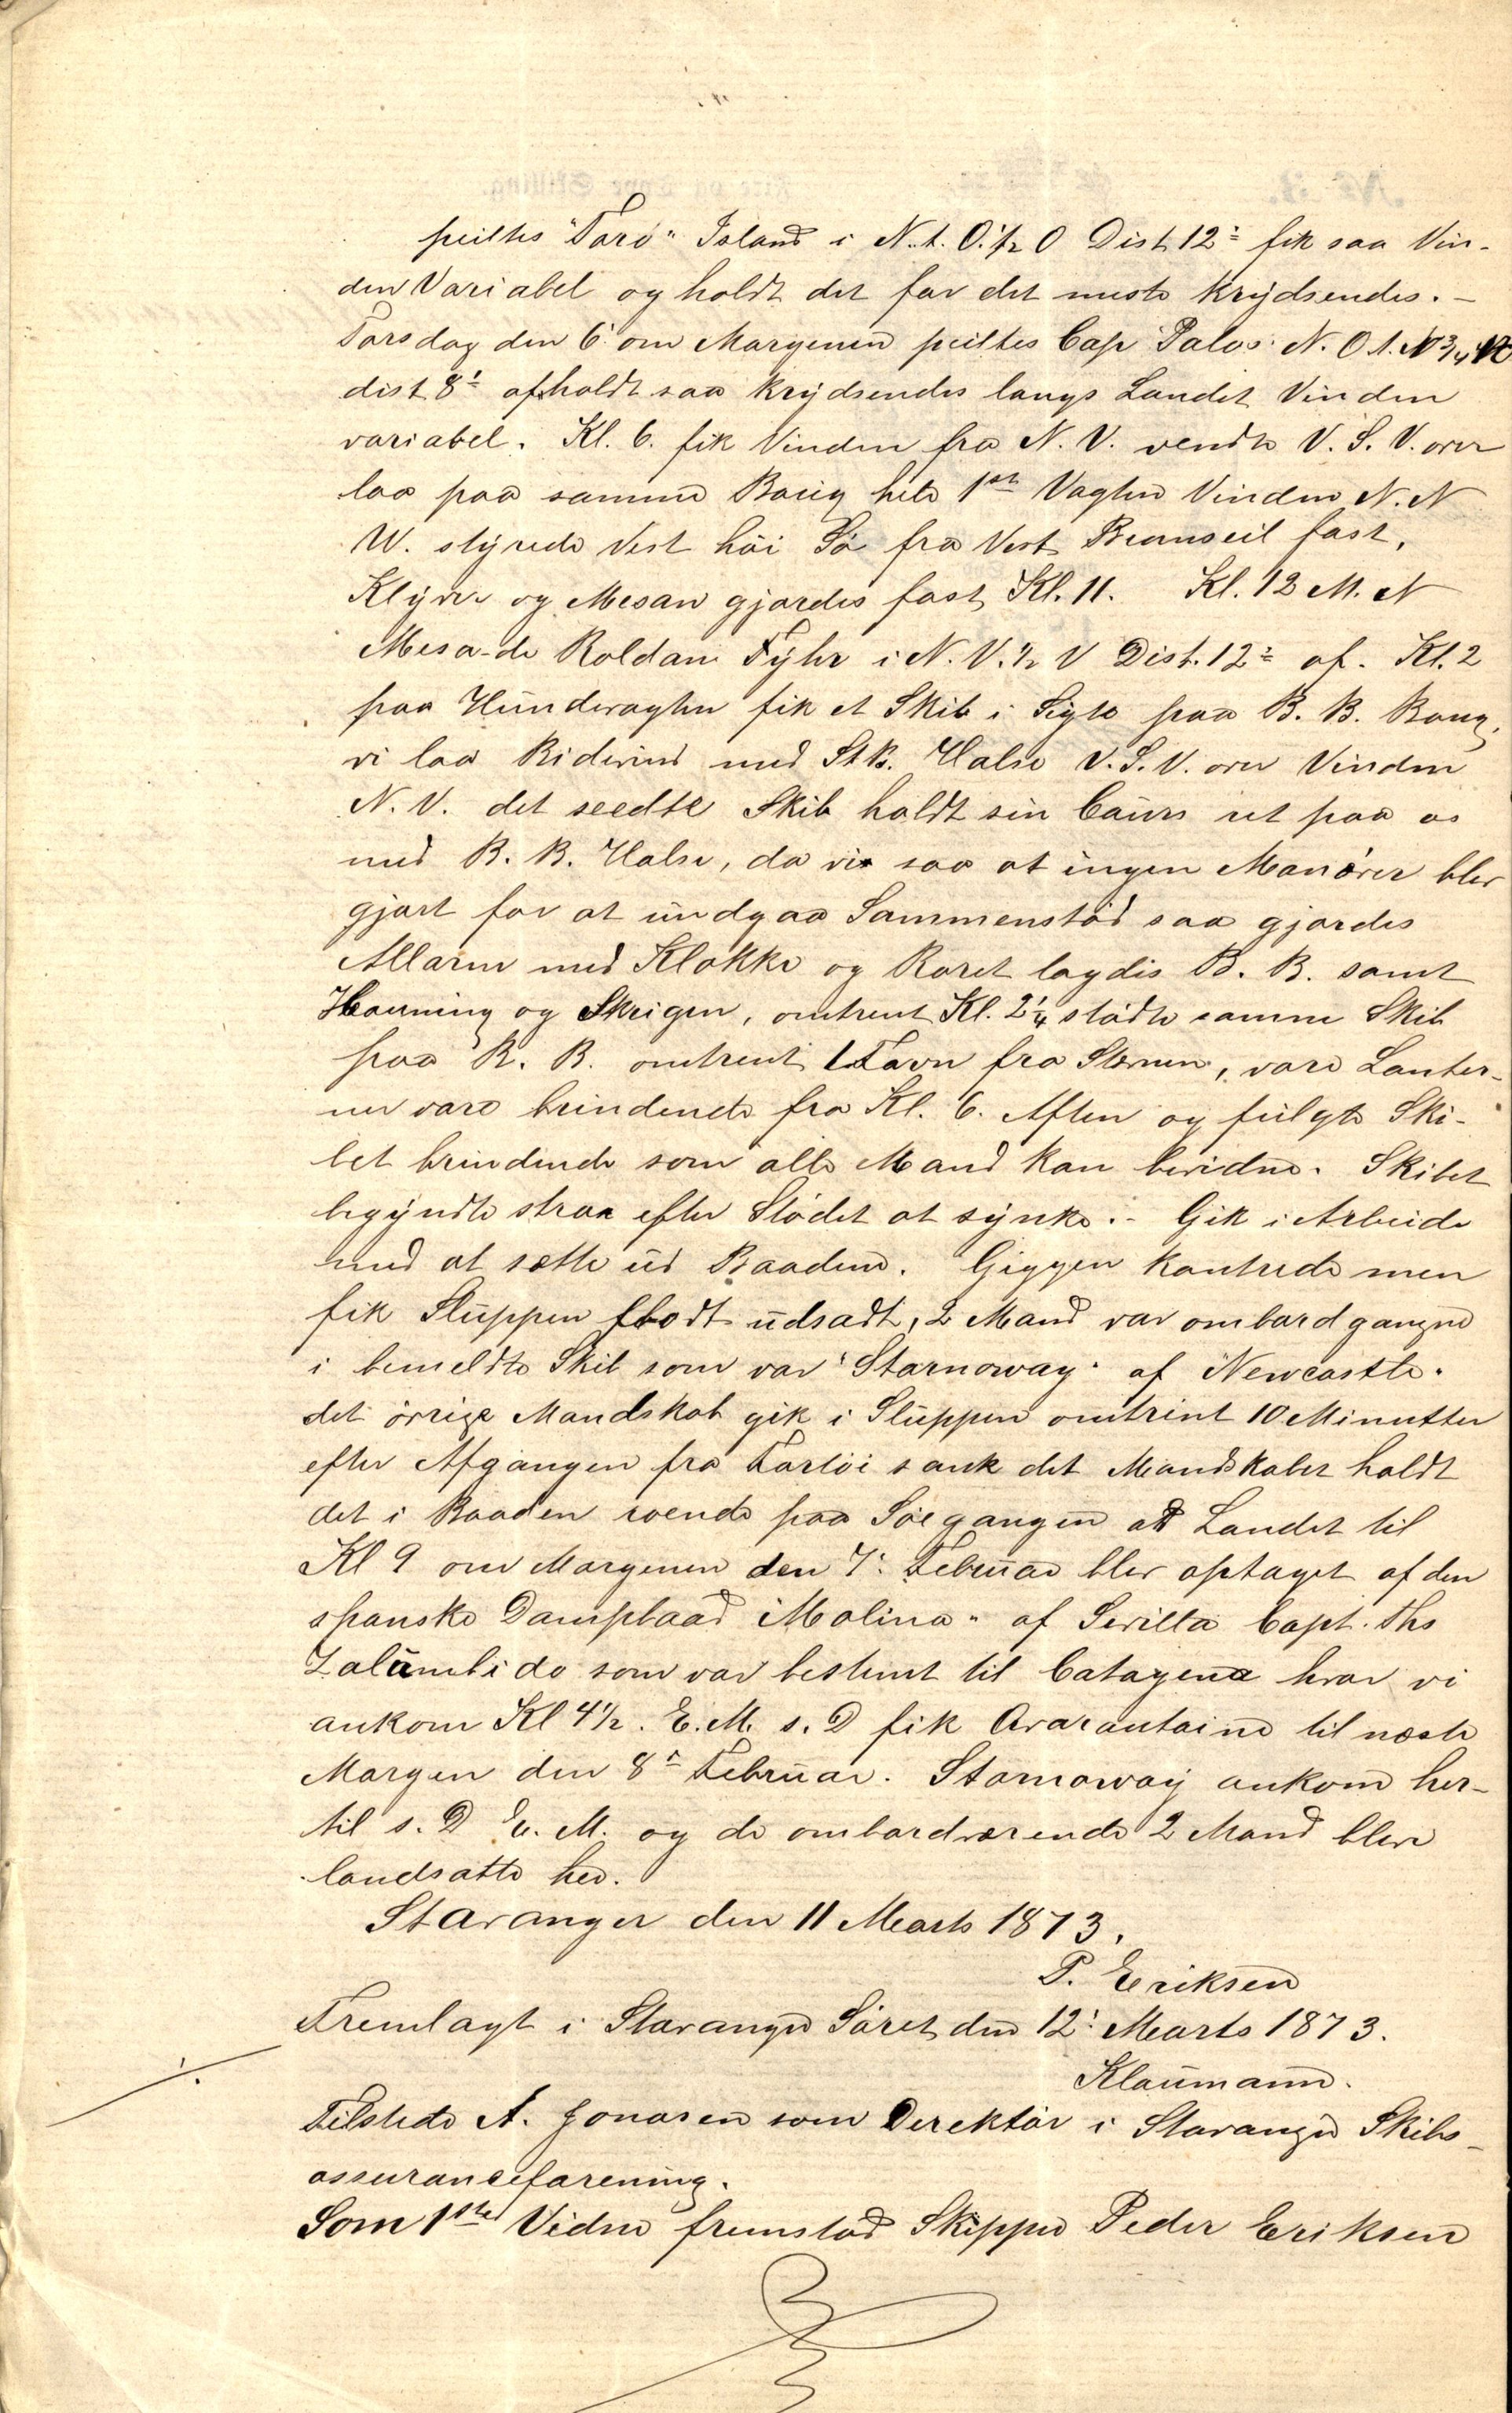 peiltes "Taro" Island i N. t. O. 1/2 O Dist 12' fik saa Vin-
den Variabel og holdt det for det meste krydsendes. -
Torsdag den 6' om Morgenen peiltes Cap Palos N. O t. N 3/4 N
dist 8' afholdt saa krydsendes langs Landet Vinden
variabel. Kl. 6. fik Vinden fra N. V. vendte V. S. V. over
laa paa samme Boug hele 1ste Vagten Vinden N. N
W. styrede Vest höi Sö fra Vest Bramseil fast,
Klyver og Mesan gjordes fast Kl. 11. Kl. 12 M. N
Mesa-de Roldan Fyhr i N. V. 1/2 V Dist. 12' af. Kl. 2
paa Hundevagten fik et Skib i Sigte paa B. B. Boug,
vi laa Bidevind med Stb. Halse V. S. V. over Vinden
N. V. det seedte Skib holdt sin Cours ret paa os
med B. B. Halse, da vi saa at ingen Manövrer blev
gjort for at undgaa Sammenstöd saa gjordes
Allarm med Klokke og Roret lagdes B. B. samt
Houning og Skrigen, omtrent Kl. 2 1/4 stödte samme Skib
paa B. B. omtrent 1 Favn fra Stevnen, vore Lanter-
ner vare brændende fra Kl. 6. Aften og fulgte Ski-
bet brændende som alle Mand kan bevidne. Skibet
begyndte strax efter Stödet at synke. - Gik i Arbeide
med at sætte ud Baadene. Giggen kantrede men
fik Sluppen flodt udsadt, 2 Mand var ombord gangne
i bemeldte Skib som var "Starnoway" af Newcastle.
det övrige Mandskab gik i Sluppen omtrent 10 Minutter
efter Afgangen fra Fartöi sank det Mandskabet holdt
det i Baaden roende paa Söegangen at Landet til
Kl 9 om Morgenen den 7' Februar blev optaget af den
spanske Dampbaad "Molina" af Sevilla Capt. Ths
Zalumbido som var bestemt til Catagena hvor vi
ankom Kl 4 1/2. E. M. s. D fik Qvarantaine til næste
Morgen den 8' Februar. Stornoway ankom her-
til s. D E. M. og de ombordværende 2 Mand bleve
landsatte her.
Stavanger den 11 Marts 1873.
P. Eriksen
Fremlagt i Stavanger Söret den 12' Marts 1873.
Klaumann.
./.
Tilstede A. Jonasen som Derektör i Stavanger Skibs-
assuranceforening.
Som 1ste Vidne fremstod Skipper Peder Eriksen